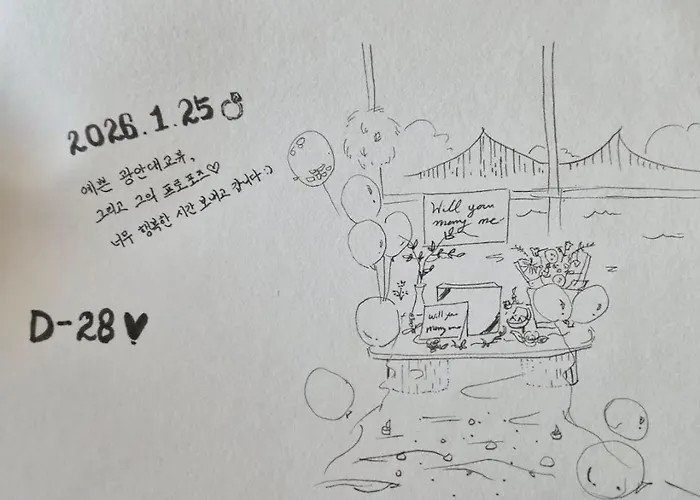 2026.1.25
예쁜 광안대교뷰,
그리고 그의 프로포즈♡
너무 행복한 시간 보내고 갑니다:)
D-28♥
Will you
marry me
Will you
marry me